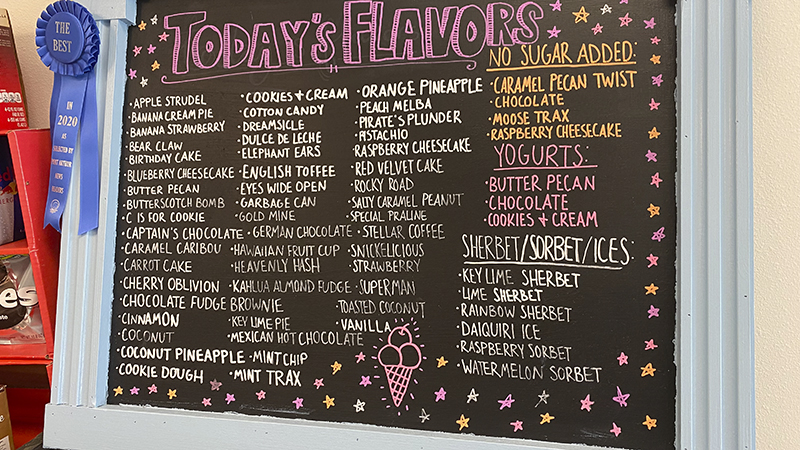 TODAY'S FLAVORS
THE
BEST
IN
2020
AS
SELECTED BY
NEWS
READERS
• APPLE STRUDEL
• BANANA CREAM PIE
• BANANA STRAWBERRY
• BEAR CLAW
• BIRTHDAY CAKE
• BLUEBERRY CHEESECAKE
• BUTTER PECAN
• BUTTERSCOTCH BOMB
• C IS FOR COOKIE
• CAPTAIN'S CHOCOLATE
• CARAMEL CARIBOU
• CARROT CAKE
• CHERRY OBLIVION
• CHOCOLATE FUDGE BROWNIE
• CINNAMON
• COCONUT
• COCONUT PINEAPPLE
• COOKIE DOUGH
• COOKIES + CREAM
• COTTON CANDY
• DREAMSICLE
• DULCE DE LECHE
• ELEPHANT EARS
• ENGLISH TOFFEE
• EYES WIDE OPEN
• GARBAGE CAN
• GOLD MINE
• GERMAN CHOCOLATE
• HAWAIIAN FRUIT CUP
• HEAVENLY HASH
• KAHLUA ALMOND FUDGE
• KEY LIME PIE
• MEXICAN HOT CHOCOLATE
• MINT CHIP
• MINT TRAX
• ORANGE PINEAPPLE
• PEACH MELBA
• PIRATE'S PLUNDER
• PISTACHIO
• RASPBERRY CHEESECAKE
• RED VELVET CAKE
• ROCKY ROAD
• SALTY CARAMEL PEANUT
• SPECIAL PRALINE
• STELLAR COFFEE
• SNICKELICIOUS
• STRAWBERRY
• SUPERMAN
• TOASTED COCONUT
• VANILLA
NO SUGAR ADDED:
• CARAMEL PECAN TWIST
• CHOCOLATE
• MOOSE TRAX
• RASPBERRY CHEESECAKE
YOGURTS:
• BUTTER PECAN
• CHOCOLATE
• COOKIES & CREAM
SHERBET/SORBET/ICES:
• KEY LIME SHERBET
• LIME SHERBET
• RAINBOW SHERBET
• DAIQUIRI ICE
• RASPBERRY SORBET
• WATERMELON SORBET